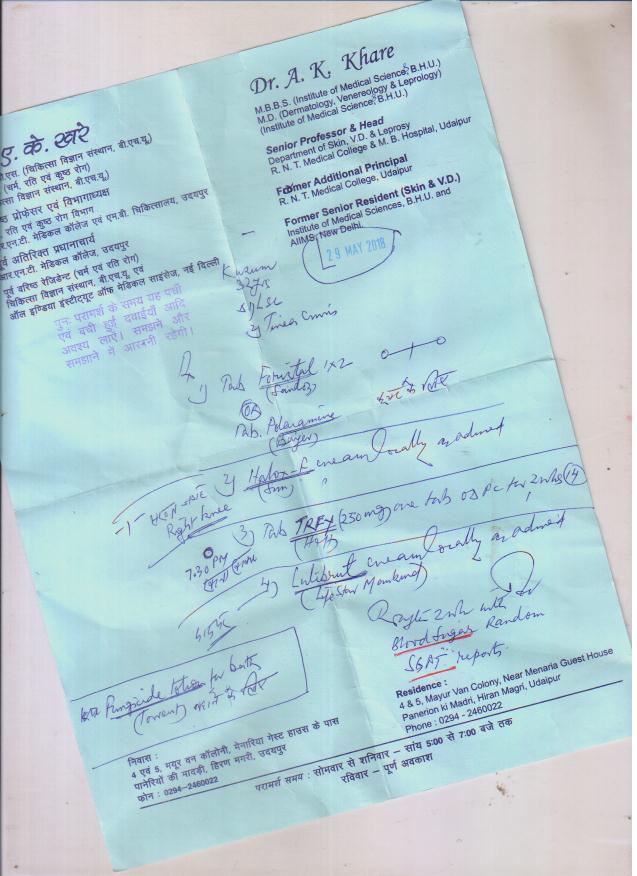 Dr. A. K. Khare
M.B.B.S. (Institute of Medical Science, B.H.U.)
M.D. (Dermatology, Venereology & Leprology)
(Institute of Medical Science, B.H.U.)
Senior Professor & Head
Department of Skin, V.D. & Leprosy
R. N. T. Medical College & M. B. Hospital, Udaipur
Former Additional Principal
R. N. T. Medical College, Udaipur
Former Senior Resident (Skin & V.D.)
Institute of Medical Sciences, B.H.U. and
AIIMS, New Delhi
ए. के. खरे
(चिकित्सा विज्ञान संस्थान, बी.एच.यू.)
(चर्म, रति एवं कुष्ठ रोग)
विज्ञान संस्थान, बी.एच.यू.)
प्रोफेसर एवं विभागाध्यक्ष
रति एवं कुष्ठ रोग विभाग
मेडिकल कॉलेज एवं एम.बी. चिकित्सालय, उदयपुर
अतिरिक्त प्रधानाचार्य
मेडिकल कॉलेज, उदयपुर
पूर्व वरिष्ठ रेजिडेन्ट (चर्म एवं रति रोग)
चिकित्सा विज्ञान संस्थान, बी.एच.यू. एवं
ऑल इण्डिया इंस्टीट्यूट ऑफ मेडिकल साइंसेज, नई दिल्ली
29 MAY 2018
पुनः परामर्श के समय यह पर्ची
एवं बची हुई दवाईयाँ आदि
अवश्य लाऐं। समझने और
समझाने में आसानी रहेगी।
Kusum
32yrs
1) LSC
2) Tinea Cruris
1) Tab 1x2
(Sandoz)
OR
Tab. Polaramine
(Bayer)
2) Halox-F cream locally as advised
(Sun)
-1-
Right knee
3) Tab TREx (250 mg) one tab OD PC for 2 wks (14)
7.30 PM
4) cream locally as advised
(Lifestar Mankind)
2 wk with
Blood Sugar Random
SGPT reports
Fungicide lotion for bath
(Torrent) नहाने के लिए
Residence :
4 & 5, Mayur Van Colony, Near Menaria Guest House
Panerion ki Madri, Hiran Magri, Udaipur
Phone : 0294 - 2460022
निवास :
4 एवं 5, मयूर वन कॉलोनी, मेनारिया गेस्ट हाउस के पास
पानेरियों की मादड़ी, हिरण मगरी, उदयपुर
फोन : 0294-2460022
परामर्श समय : सोमवार से शनिवार – सांय 5:00 से 7:00 बजे तक
रविवार – पूर्ण अवकाश